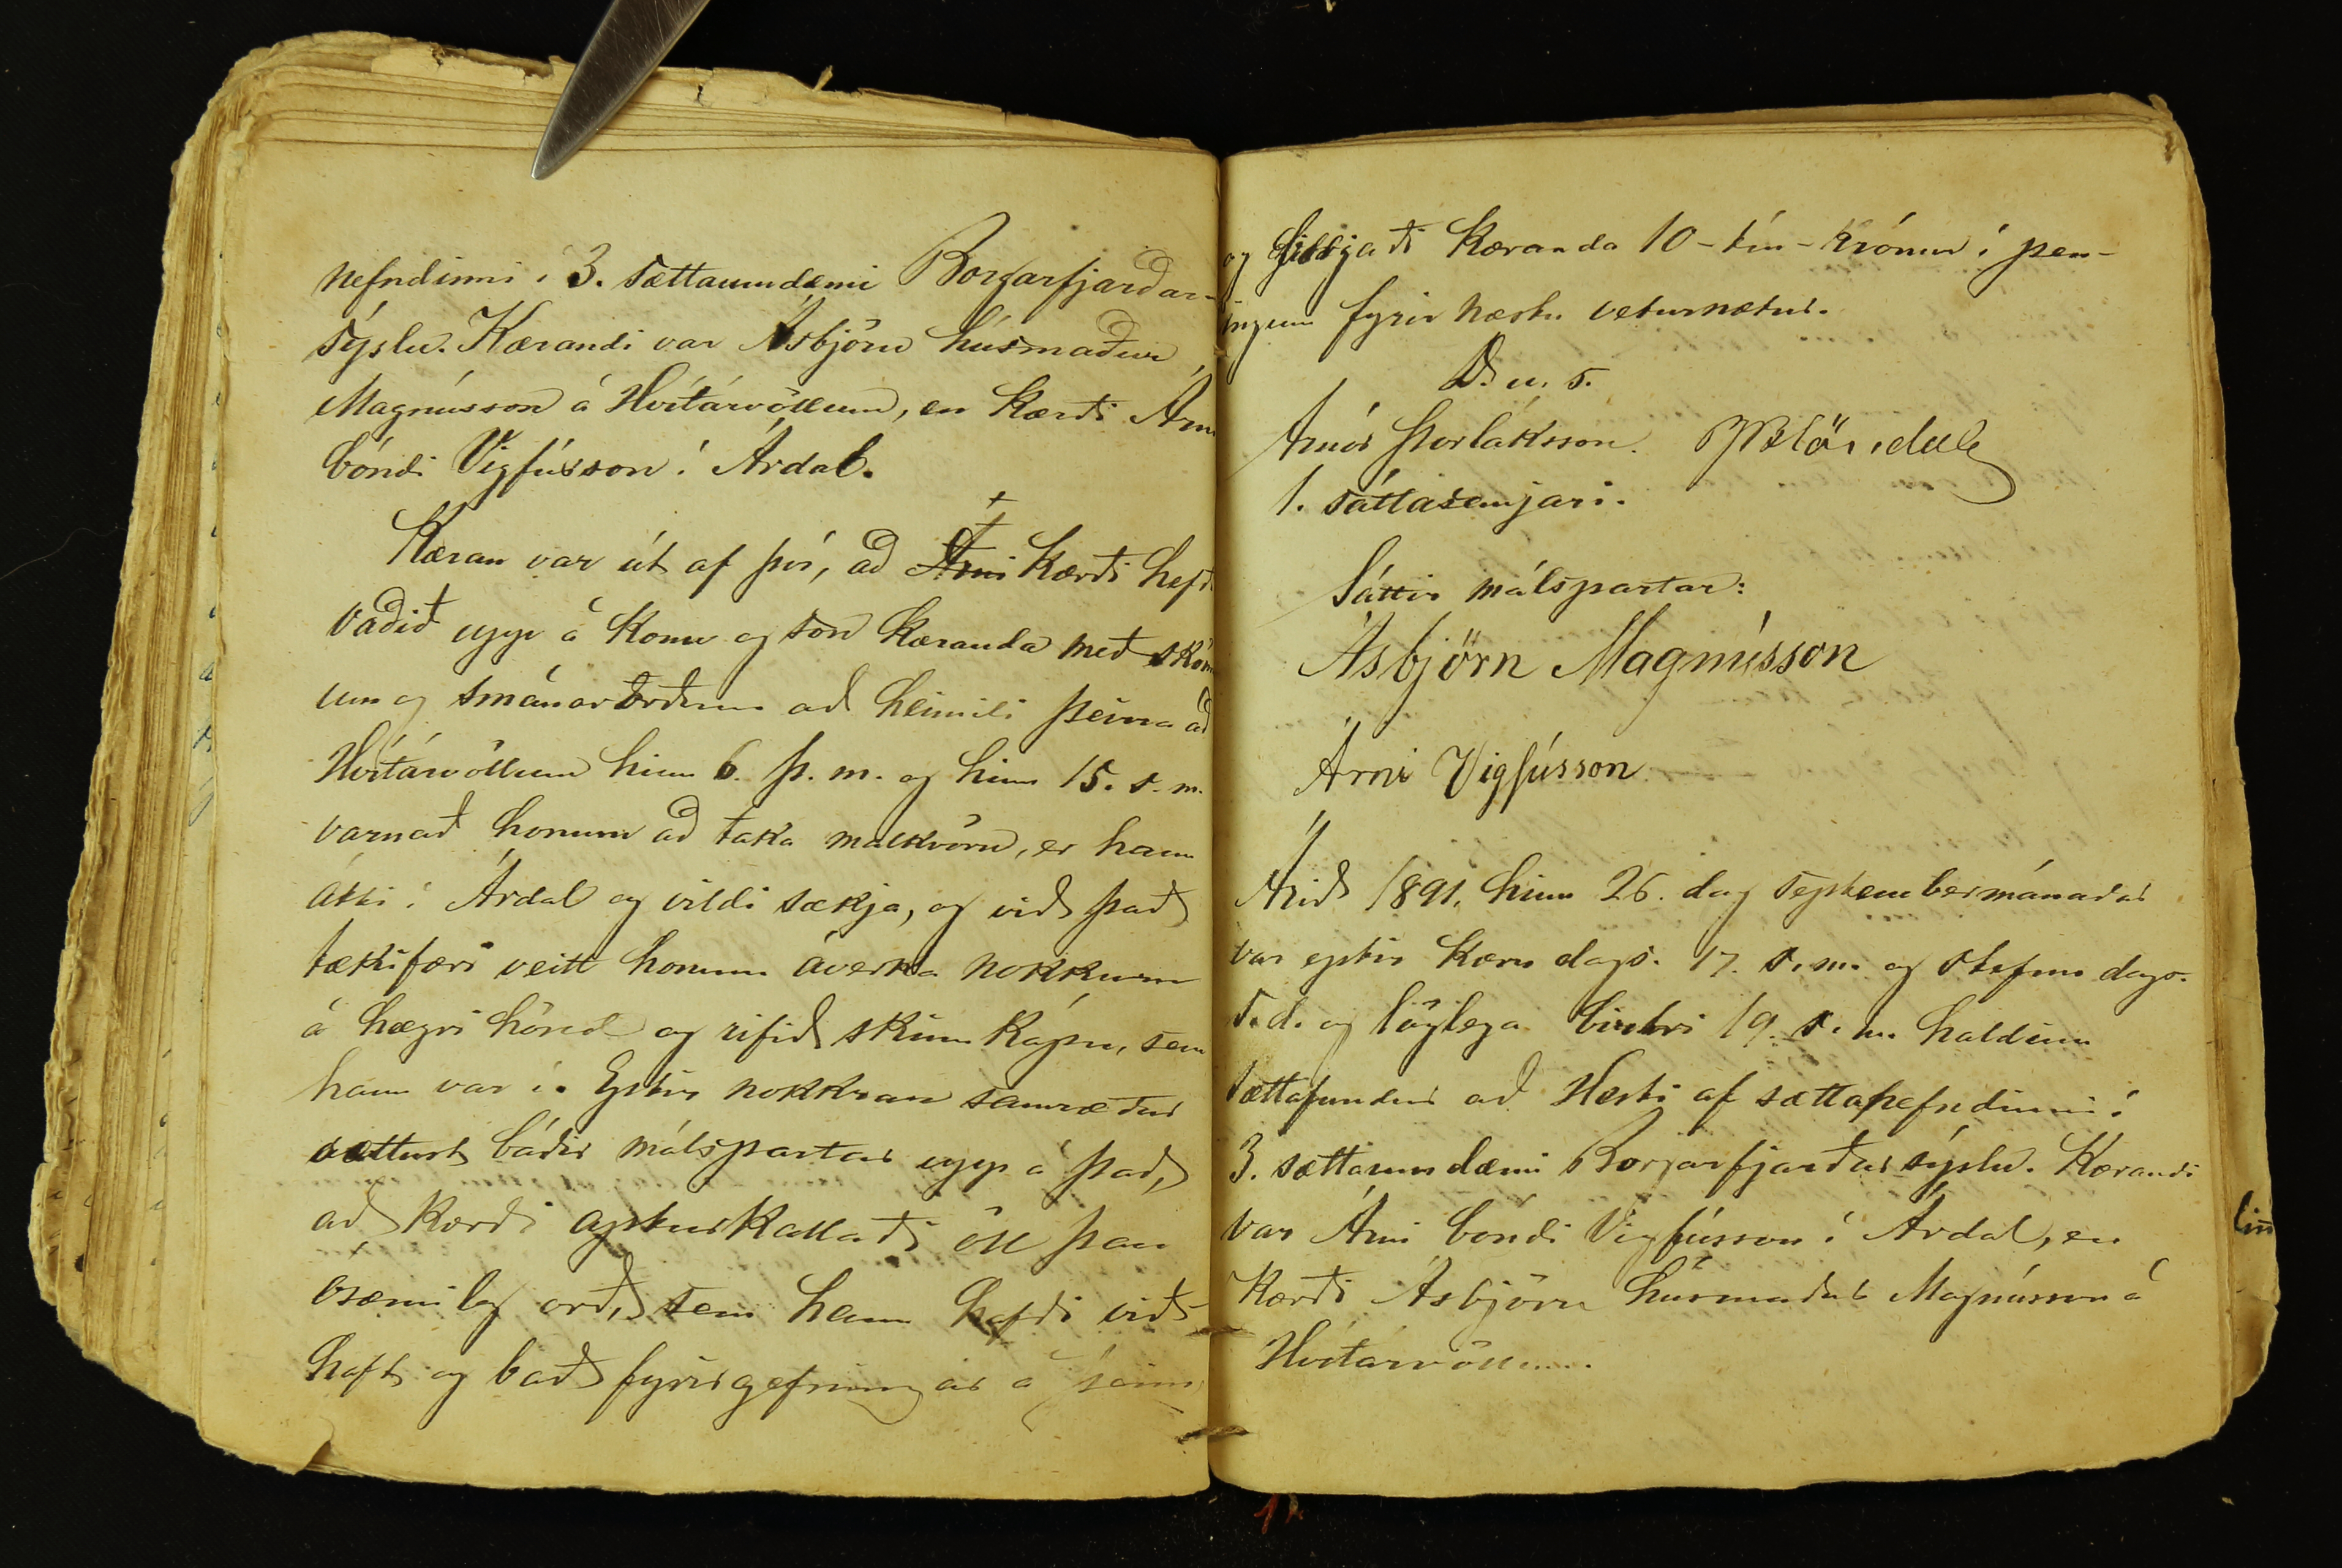 nefndinni í 3. sáttaumdæmi Borgarfjarðar-
sýslu. Kærandi var Ásbjörn húsmaður
Magnússon á Hvítárvöllum, en kærði Árni
bóndi Vigfússon í Árdal.
Kæran var út af því, að Árni kærði hefði
vaðið upp á konu og son kæranda með skömm
um og smánarorðum að heimili þeirra að
Hvítárvöllum hinn 6. þ. m. og hinn 15. s. m.
varnað honum að taka malkvörn, er hann
átti í Árdal og vildi sækja, og við það
tækifæri veitt honum áverka nokkurn
á hægri hönd og rifið skinnkápu, sem
hann var í. Eptir nokkrar samræður
sættust báðir málspartar upp á það,
að kærði apturkallaði öll þau
ósæmileg orð, sem hann hafði við-
haft og bað fyrirgefningar á þeim,
og gildjaði kæranda 10 - tíu - krónur í pen-
ingum fyrir næstu veturnætur.
D. u. s.
Arnór Þorláksson. Blöndal
1. sáttasemjari.
Sáttir málspartar:
Ásbjörn Magnússon
Árni Vigfússon
Árið 1891, hinn 26. dag septembermánaðar
var eptir kæru dags. 17. s. m. og stefnu dags.
s. d. og löglega birtri 19. s. m. haldinn
sættafundur að Hesti af sættanefndinni í
3. sættaumdæmi Borgarfjarðarsýslu. Kærandi
var Árni bóndi Vigfússon í Árdal, en
kærði Ásbjörn húsmaður Magnússon á
Hvítárvöllum.